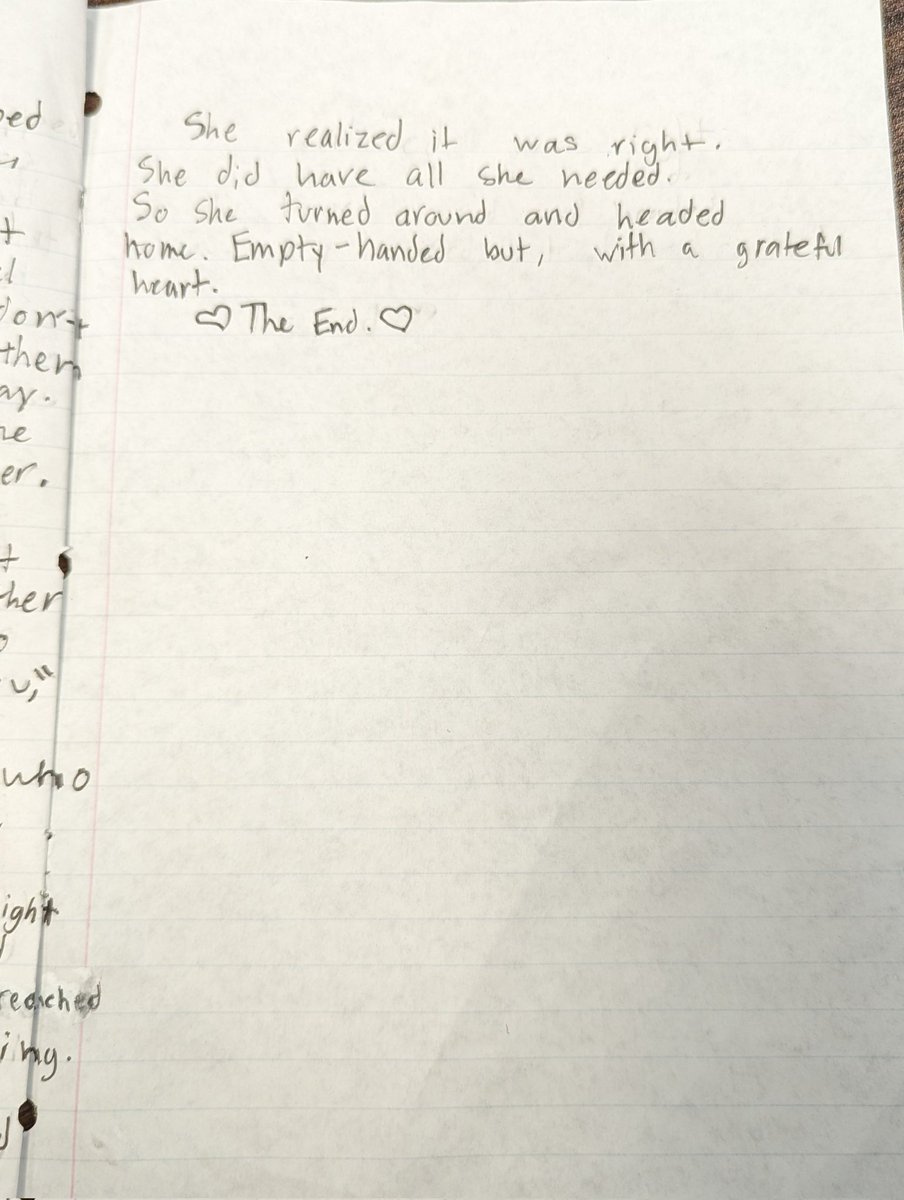 She realized it was right.
She did have all she needed.
So she turned around and headed
home. Empty-handed but, with a grateful
heart.
♡ The End. ♡
them
ay.
er.
who
reached